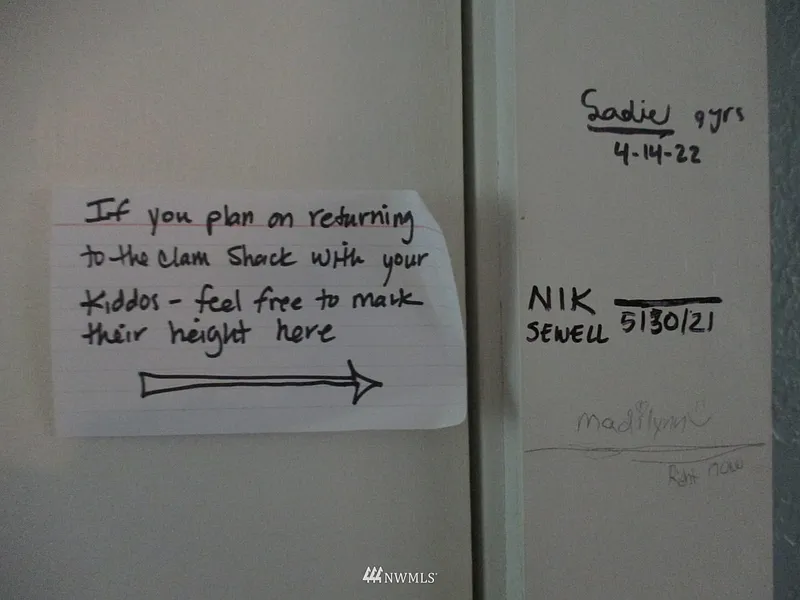 If you plan on returning
to the clam Shack with your
Kiddos - feel free to mark
their height here
Sadie 9yrs
4-14-22
NIK
SEWELL 5/30/21
madilynn
Right now
NWMLS